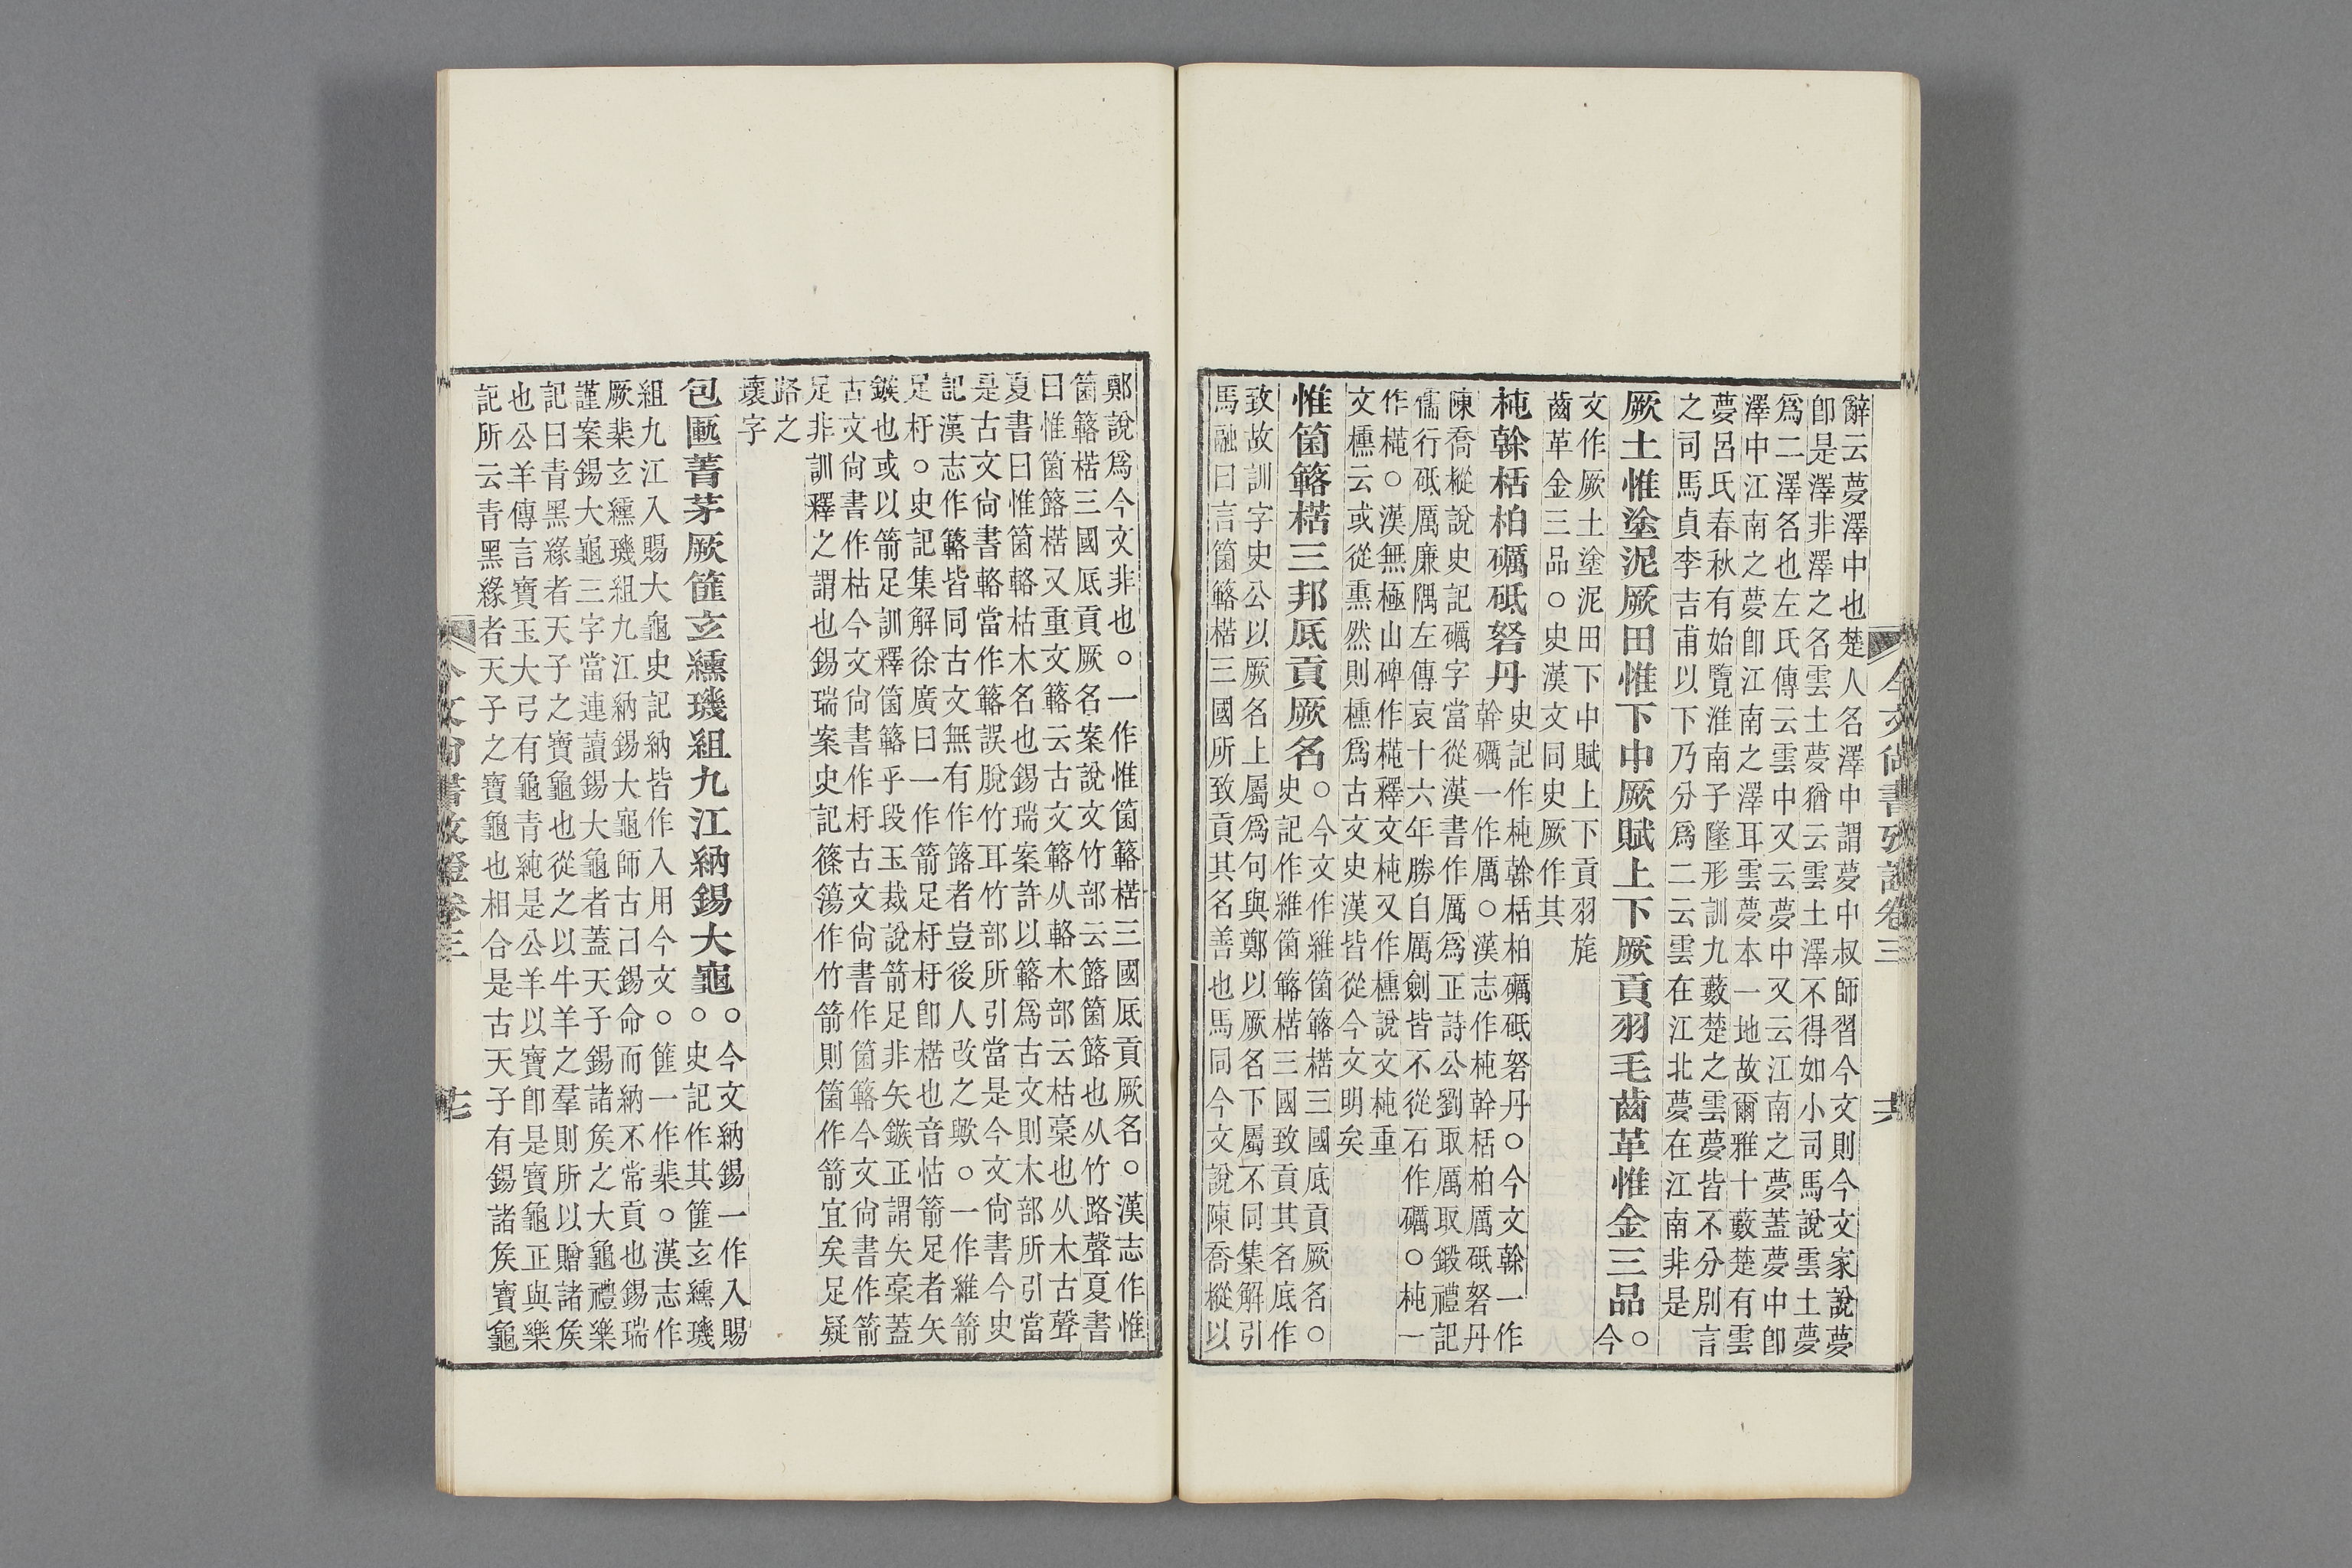 今文尚書攷證卷三
十六
辭云夢澤中也楚人名澤中謂夢中叔師習今文則今文家說夢
卽是澤非澤之名雲土夢猶云雲土澤不得如小司馬說雲土夢
爲二澤名也左氏傳云雲中又云夢中又云江南之夢蓋夢中卽
澤中江南之夢卽江南之澤耳雲夢本一地故爾雅十藪楚有雲
夢呂氏春秋有始覽淮南子墬形訓九藪楚之雲夢皆不分別言
之司馬貞李吉甫以下乃分爲二云雲在江北夢在江南非是
厥土惟塗泥厥田惟下中厥賦上下厥貢羽毛齒革惟金三品○今
文作厥土塗泥田下中賦上下貢羽旄
齒革金三品○史漢文同史厥作其
杶榦栝柏礪砥砮丹史記作杶榦栝柏礪砥砮丹○今文榦一作
幹礪一作厲○漢志作杶幹栝柏厲砥砮丹
陳喬樅說史記礪字當從漢書作厲爲正詩公劉取厲取鍛禮記
儒行砥厲廉隅左傳哀十六年勝自厲劍皆不從石作礪○杶一
作櫄○漢無極山碑作櫄釋文杶又作櫄說文杶重
文櫄云或從熏然則櫄爲古文史漢皆從今文明矣
惟箘簵楛三邦厎貢厥名○今文作維箘簵楛三國底貢厥名○
史記作維箘簵楛三國致貢其名底作
致故訓字史公以厥名上屬爲句與鄭以厥名下屬不同集解引
馬融曰言箘簵楛三國所致貢其名善也馬同今文說陳喬樅以
鄭說爲今文非也○一作惟箘簵楛三國厎貢厥名○漢志作惟
箘簵楛三國厎貢厥名案說文竹部云簬箘簬也从竹路聲夏書
曰惟箘簬楛又重文簵云古文簬从輅木部云枯槀也从木古聲
夏書曰惟箘輅枯木名也錫瑞案許以簵爲古文則木部所引當
是古文尚書輅當作簵誤脫竹耳竹部所引當是今文尚書今史
記漢志作簵皆同古文無有作簬者豈後人改之歟○一作維箭
足杅○史記集解徐廣曰一作箭足杅杅卽楛也音怙箭足者矢
鏃也或以箭足訓釋箘簵乎段玉裁說箭足非矢鏃正謂矢槀蓋
古文尚書作枯今文尚書作杅古文尚書作箘簵今文尚書作箭
足非訓釋之謂也錫瑞案史記篠簜作竹箭則箘作箭宜矣足疑
路之
壞字
包匭菁茅厥篚玄纁璣組九江納錫大龜○今文納錫一作入賜
○史記作其篚玄纁璣
組九江入賜大龜史記納皆作入用今文○篚一作棐○漢志作
厥棐玄纁璣組九江納錫大龜師古曰錫命而納不常貢也錫瑞
謹案錫大龜三字當連讀錫大龜者蓋天子錫諸矦之大龜禮樂
記曰青黑緣者天子之寶龜也從之以牛羊之羣則所以贈諸矦
也公羊傳言寶玉大弓有龜青純是公羊以寶卽是寶龜正與樂
記所云青黑緣者天子之寶龜也相合是古天子有錫諸矦寶龜
今文尚書攷證卷三
十七